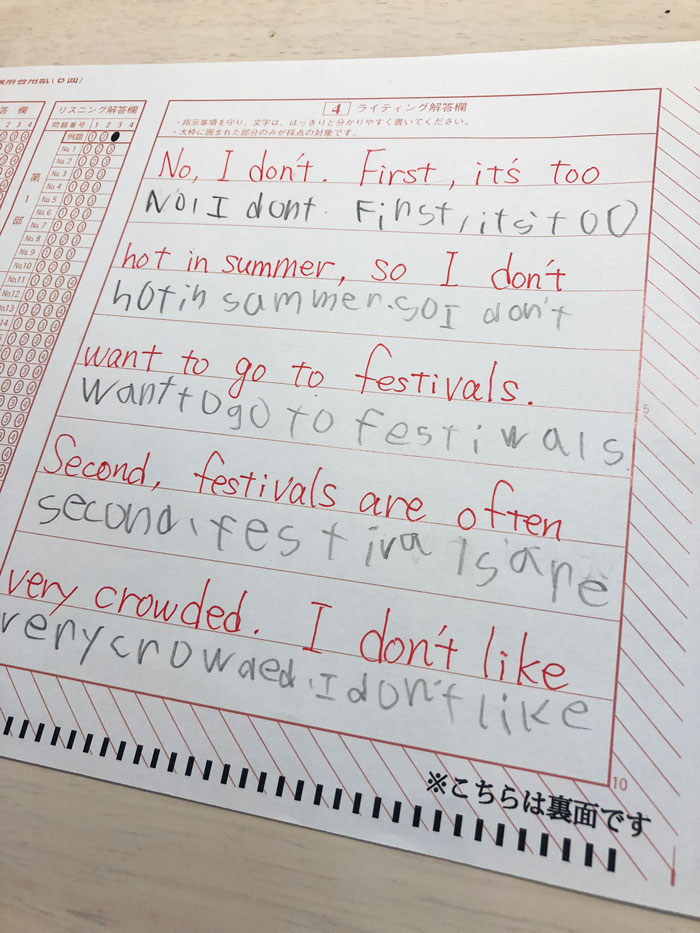 解答用紙(B面)
答 欄
2 3 4
リスニング解答欄
問題番号 1 2 3 4
例題 ① ②
第1部
No.1 ① ② ③
No.2 ① ② ③
No.3 ① ② ③
No.4 ① ② ③
No.5 ① ② ③
No.6 ① ② ③
No.7 ① ② ③
No.8 ① ② ③
No.9 ① ② ③
No.10 ① ② ③
No.11
No.12
4 ライティング解答欄
・指示事項を守り、文字は、はっきりと分かりやすく書いてください。
・太枠に囲まれた部分のみが採点の対象です。
No, I don't. First, it's too
No, I dont. First, its too
hot in summer, so I don't
hot in summer. so I don't
want to go to festivals.
want to go to festiwals.
5
Second, festivals are often
second, festivals are
very crowded. I don't like
very crowded. I don't like
10
※こちらは裏面です